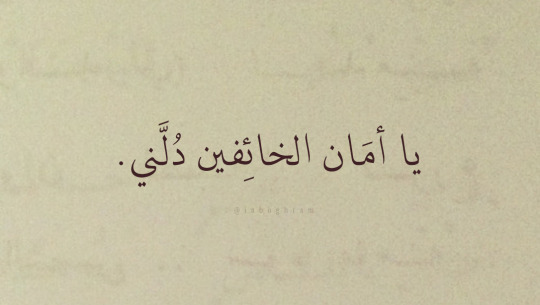 يا أمَان الخائِفين دُلَّني.